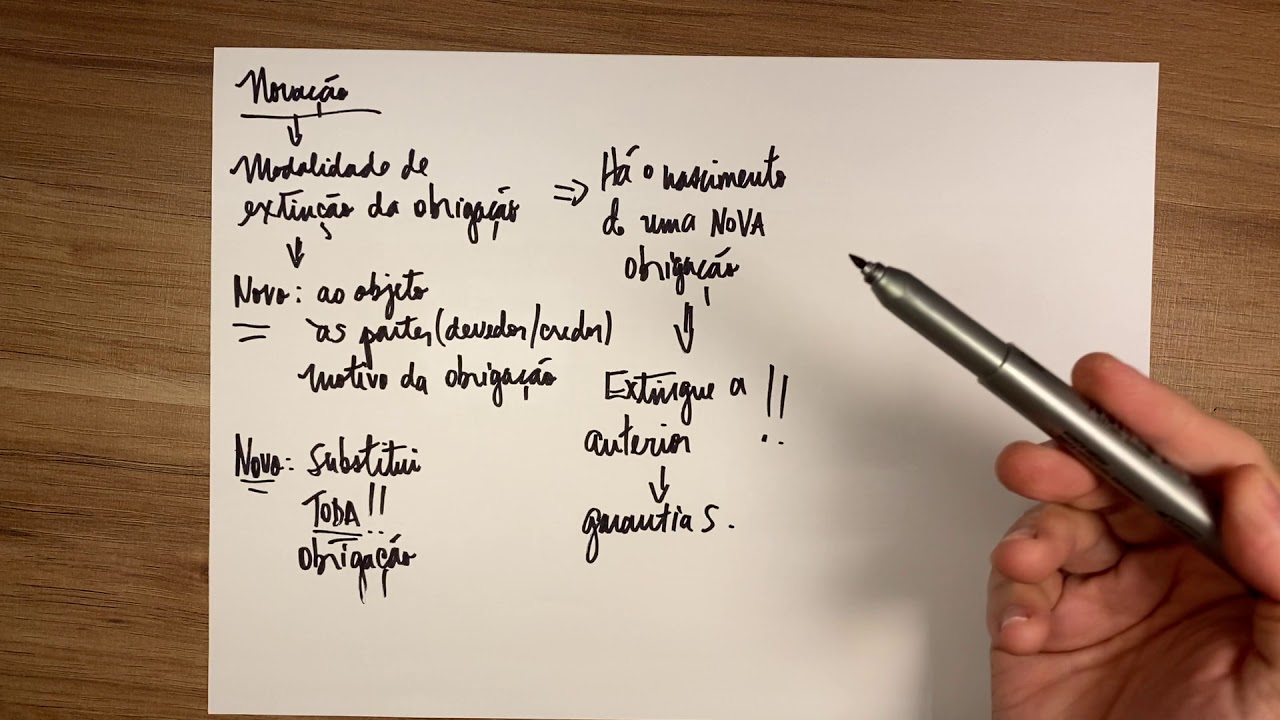 Novação
Modalidade de
extinção da obrigação
Novo: ao objeto
às partes (devedor/credor)
motivo da obrigação
Novo: Substitui
TODA!!
obrigação
⇒ Há o nascimento
de uma NOVA
obrigação
Extingue a !!
anterior
garantias.